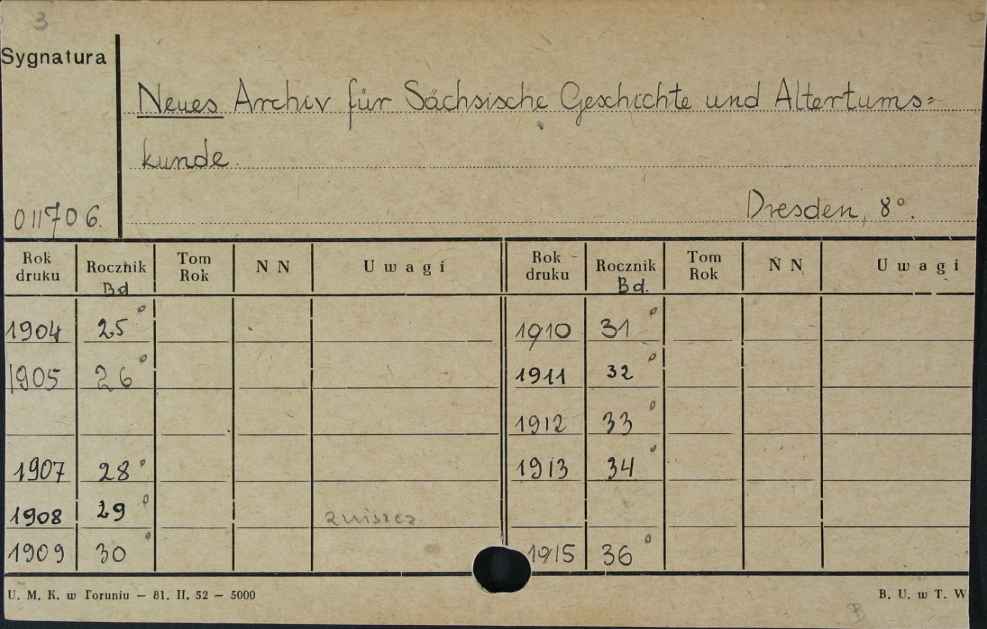 3
Sygnatura
Neues Archiv für Sächsische Geschichte und Altertums=
kunde.
011706.
Dresden, 8°.
Rok druku Rocznik Bd Tom Rok N N Uwagi Rok druku Rocznik Bd. Tom Rok N N Uwagi
1904 25° 1910 31°
1905 26° 1911 32°
1912 33°
1907 28° 1913 34°
1908 29° zniszcz
1909 30° 1915 36°
U. M. K. w Toruniu — 81. II. 52 — 5000 B. U. w T. W
B